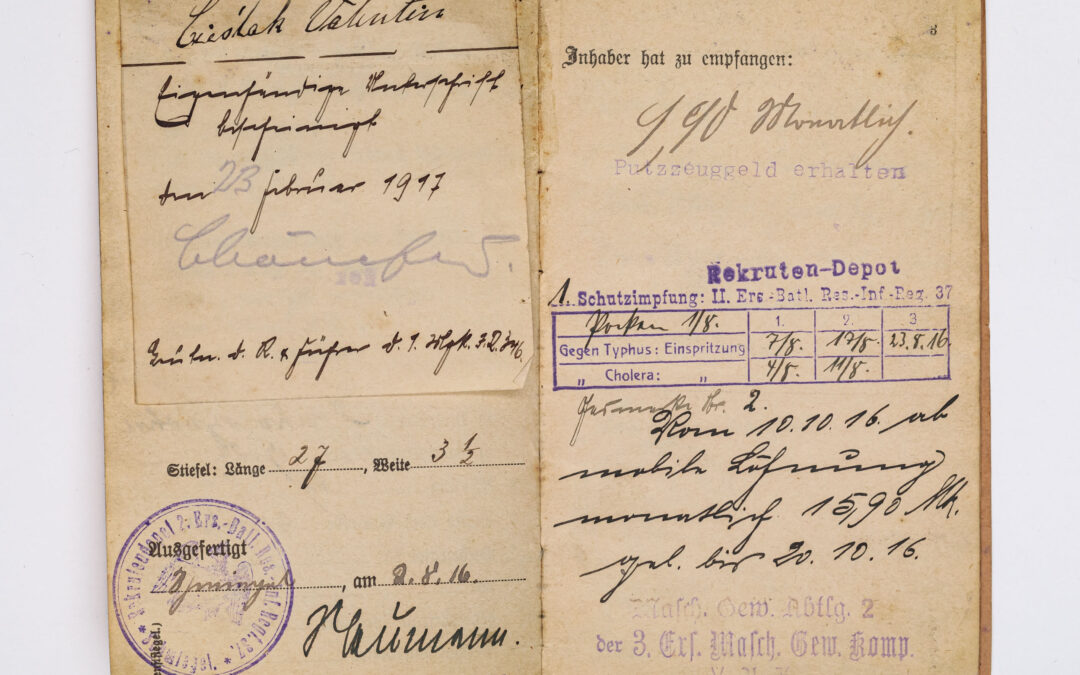 Cieślak Valentin
Eigenhändige Unterschrift
bescheinigt
den 23 Februar 1917
Leutn. d. R. & Führer d.
Stiefel: Länge 27, Weite 3 ½
Ausgefertigt
, am 2.8.16.
Naumann.
3
Inhaber hat zu empfangen:
Monatlich.
Putzzeuggeld erhalten
Rekruten-Depot
1. Schutzimpfung: II. Ers.-Batl. Res.-Inf.-Reg. 37
Pocken 1/8. 1. 2. 3
Gegen Typhus: Einspritzung 7/8. 17/8. 23.8.16
„ Cholera: „ 4/8. 11/8.
2.
Vom 10.10.16. ab
mobile Löhnung
monatlich 15,90 Mk.
gel. bis 20.10.16.
Masch. Gew. Abtlg. 2
der 3. Ers. Masch. Gew. Komp.